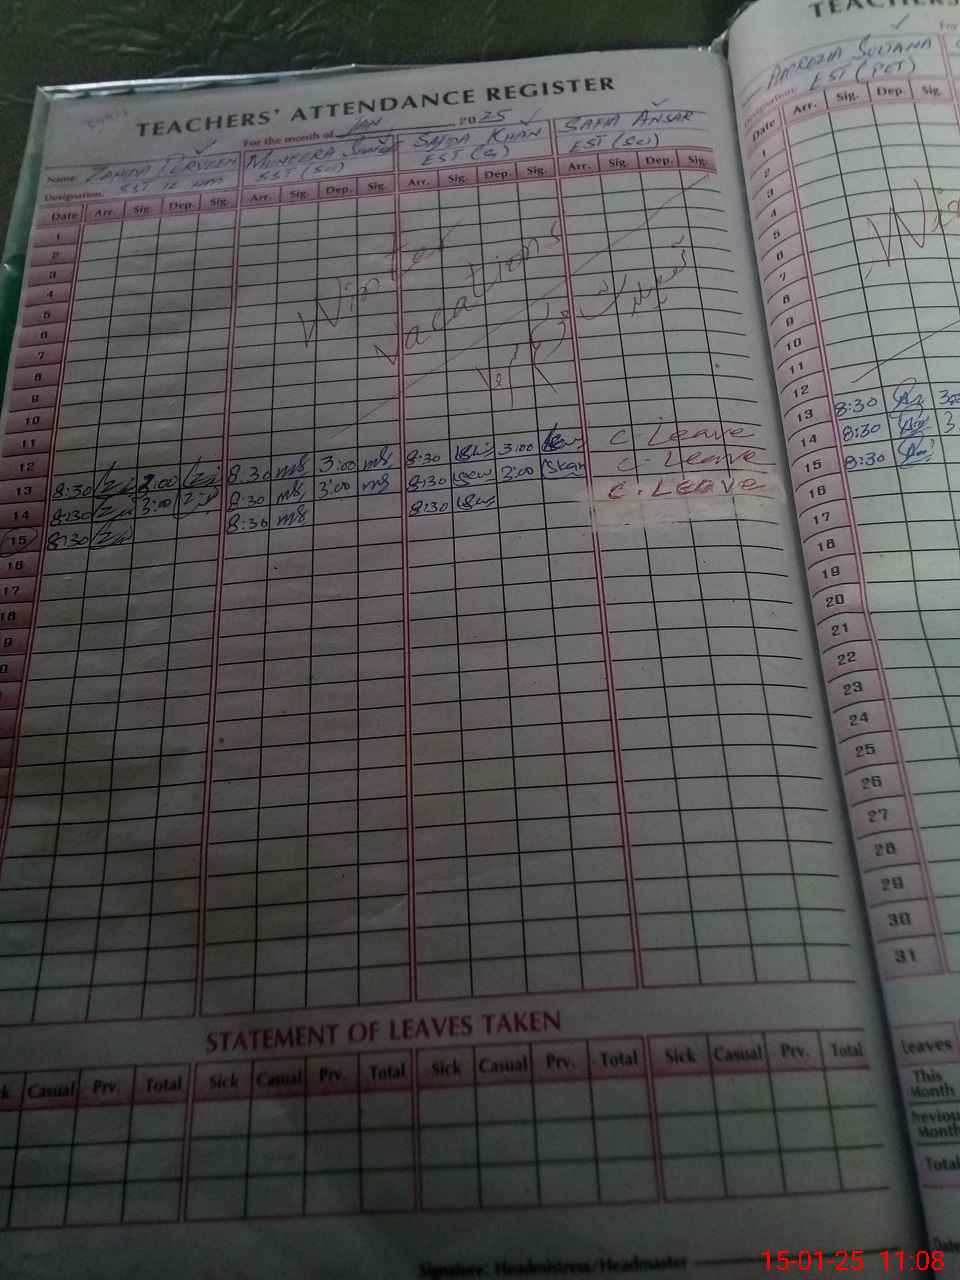 TEACHERS' ATTENDANCE REGISTER
For the month of JAN 2025
Name: ZAHIDA PERVEEN MUNEERA SAIDA KHAN SAFIA ANSAR
Designation: SST SST (Sci) EST (G) EST (Sci)
Date Arr. Sig. Dep. Sig. Arr. Sig. Dep. Sig. Arr. Sig. Dep. Sig. Arr. Sig. Dep. Sig.
1
2
3
4
5
6
7
8
9
10
11
12
Winter
vacations
موسم سرما
تعطیلات
13 8:30 3:00 8:30 ms 3:00 ms 8:30 3:00 C-Leave
14 8:30 3:00 8:30 ms 3:00 ms 8:30 3:00 C-Leave
15 8:30 8:30 ms 8:30 C-LEAVE
16
17
18
STATEMENT OF LEAVES TAKEN
Casual Prv. Total Sick Casual Prv. Total Sick Casual Prv. Total Sick Casual Prv. Total
Signature: Headmistress/Headmaster
TEACHERS
SULTANA
EST (PET)
Designation:
Date Arr. Sig. Dep. Sig.
1
2
3
4
5
6
7
8
9
10
11
12
13 8:30
14 8:30
15 8:30
16
17
18
19
20
21
22
23
24
25
26
27
28
29
30
31
Leaves
This
Month
Previous
Month
Total
15-01-25 11:08